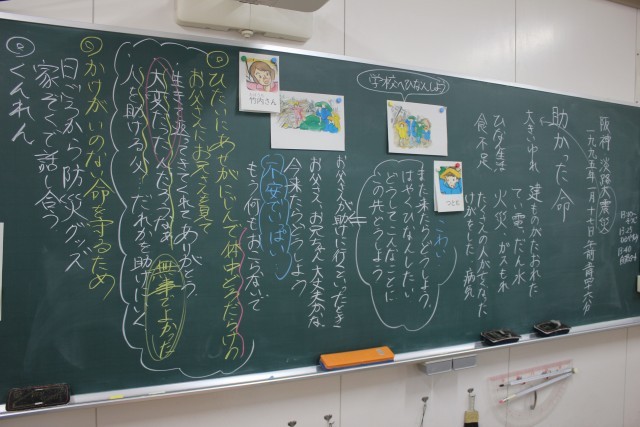 阪神 淡路大震災
一九九五年一月十七日 午前五時四十六分
助かった命
大きいゆれ 建ものがたおれた
ひなん生活 てい電、だん水
食不足 火災 ガスもれ
たくさんの人が亡くなった
けがをした 病気
つとむ
学校へひなんしよう
こわい…
また来たらどうしよう。
はやくひなんしたい
どうしてこんなことに
この先どうしよう
お父さんが助けに行くといったとき
お父さん、お兄ちゃん大丈夫かな
今来たらどうしよう
もう何もおこらないで
不安いっぱい…
竹内さん
ひたいにあせがにじんで体中どろだらけの
お父さんとお兄さんを見て
生きて返ってきてくれてありがとう。
大変だったんだろうなあ
人を助ける父…だれかを助けにいく
無事でよかった
かけがいのない命を守るため
日ごろから防災グッズ
家ぞくで話し合う
くんれん